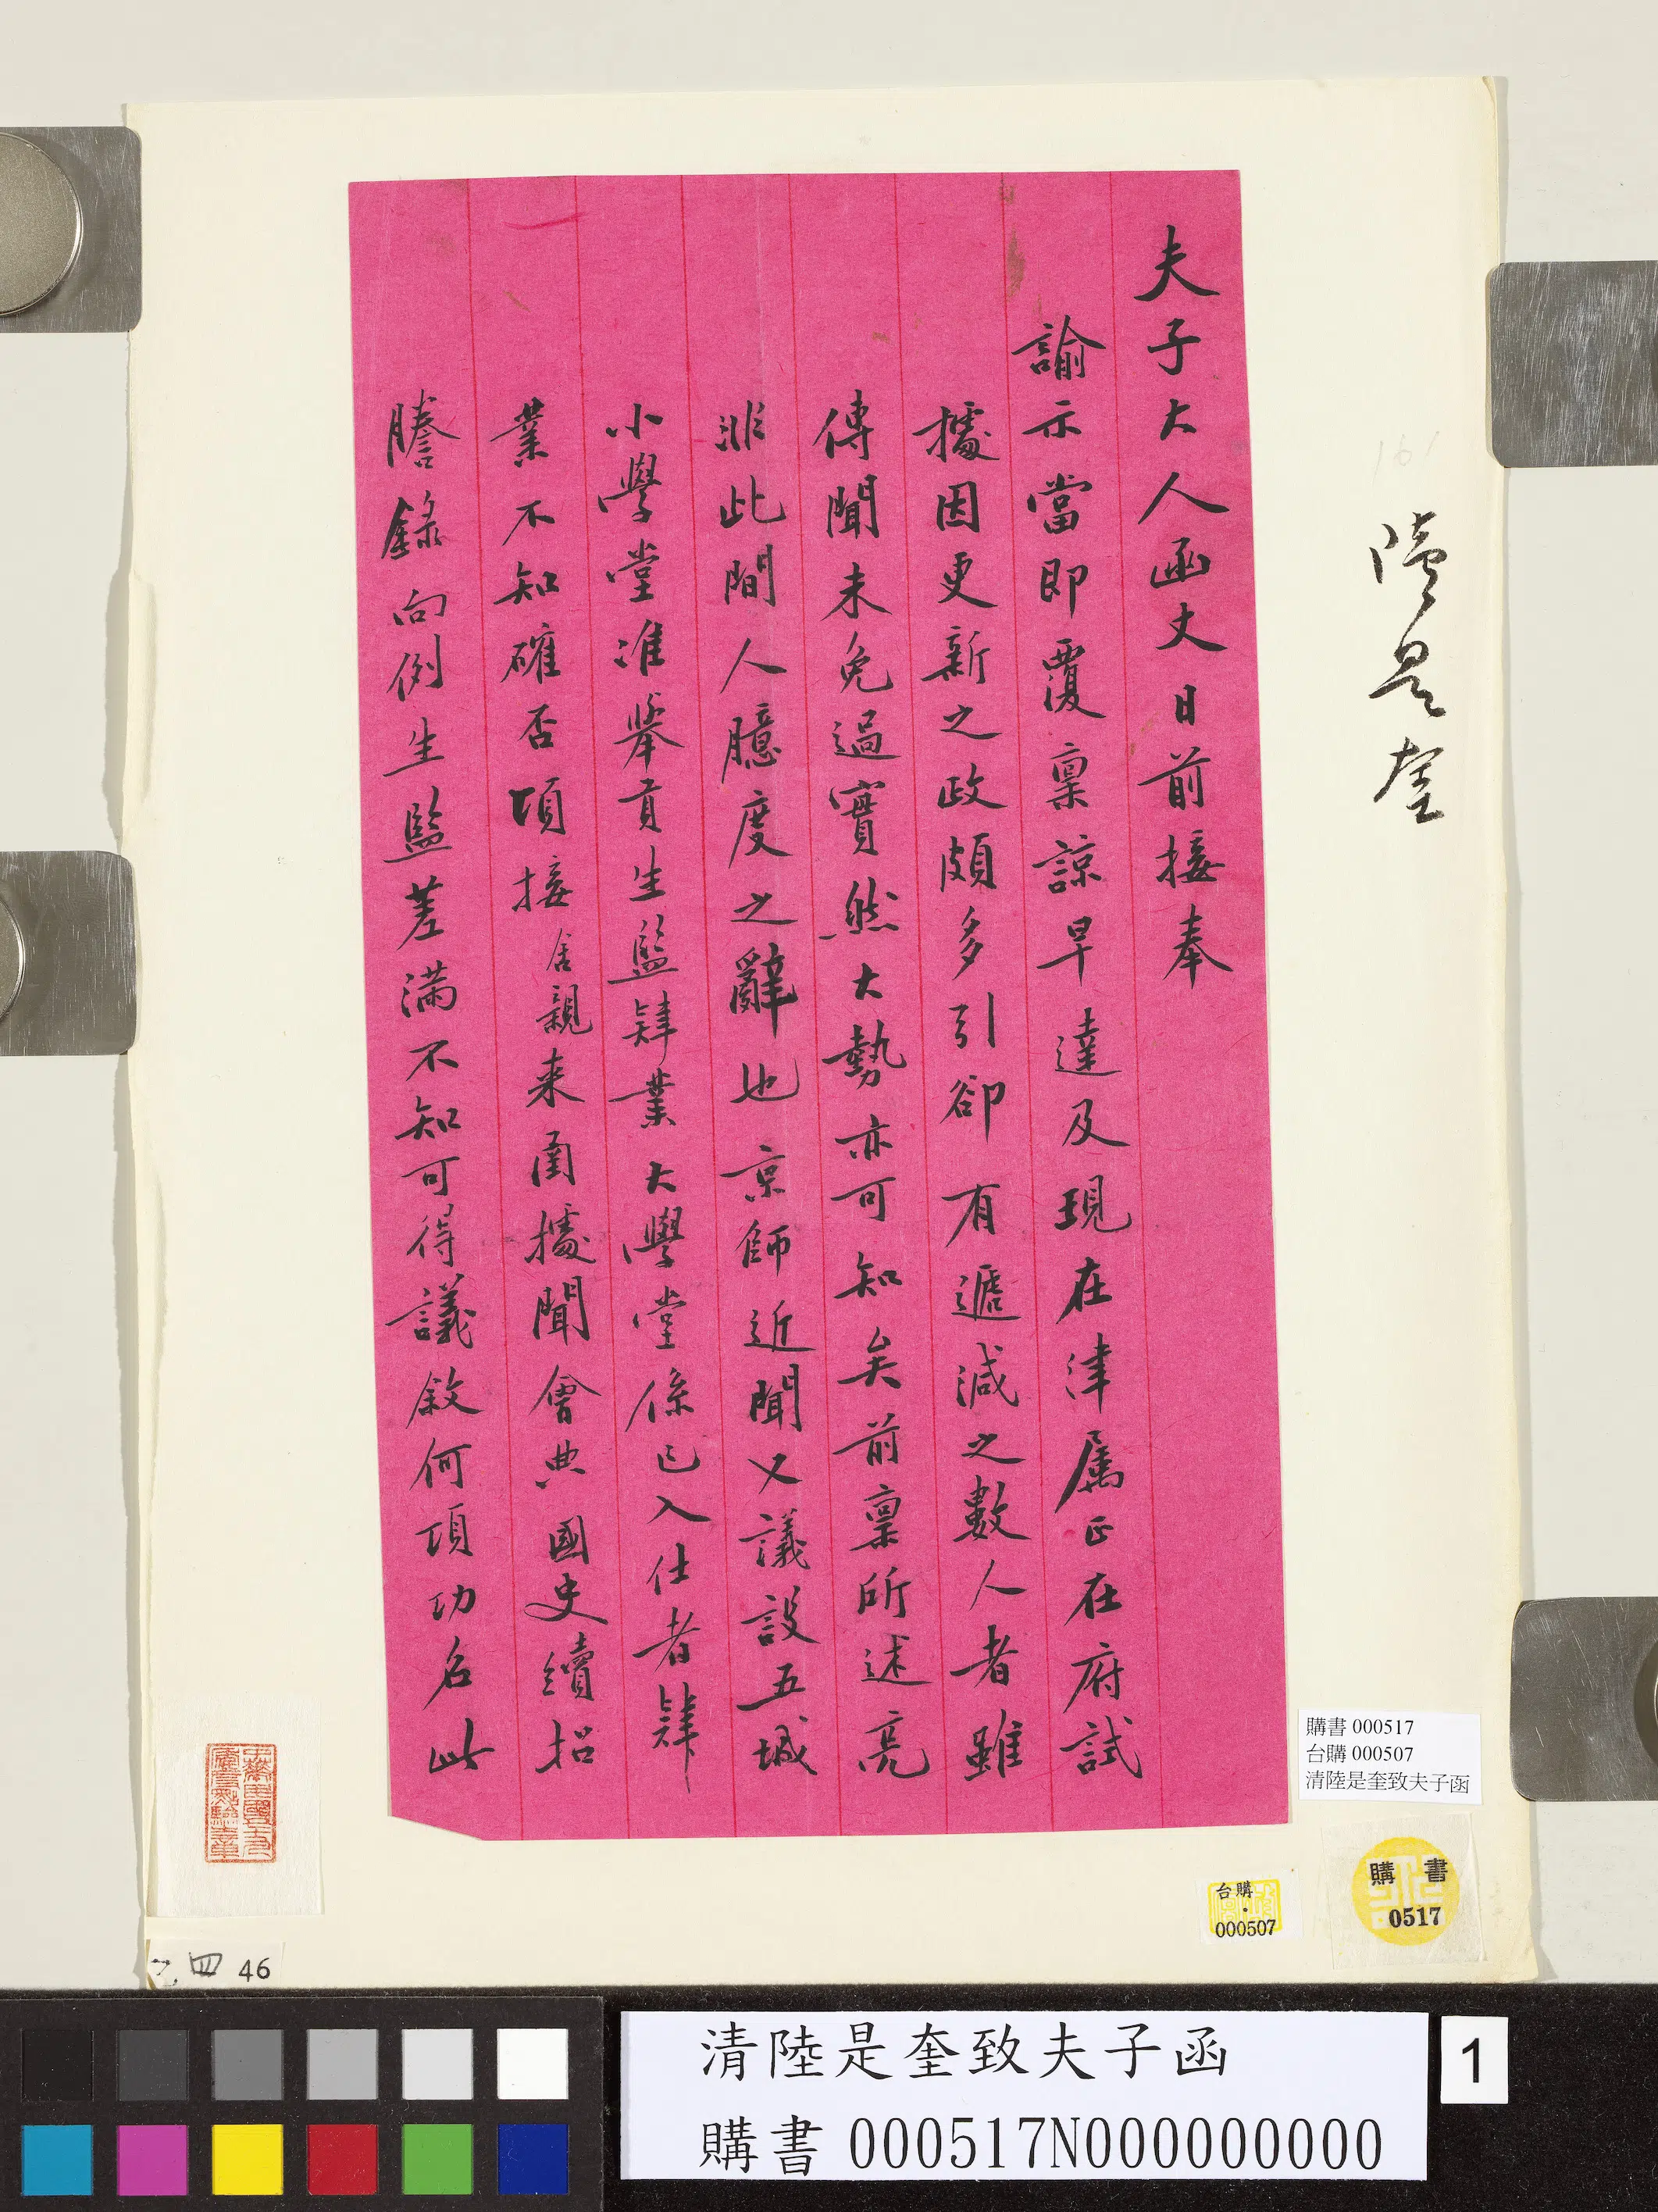 夫子大人函丈日前接奉
諭示當即覆稟諒早達及現在津屬正在府試
據因更新之政頗多引卻有遞減之數人者雖
傳聞未免過實然大勢亦可知矣前稟所述亮
非此間人臆度之辭也京師近聞又議設五城
小學堂准舉貢生監肄業大學堂係已入仕者肄
業不知確否頃接舍親来函據聞會典國史續招
謄錄向例生監差滿不知可得議敘何項功名此
陸是奎
161
購書 000517
台購 000507
清陸是奎致夫子函
購書
0517
台購
000507
乙四 46
清陸是奎致夫子函
購書 000517N000000000
1